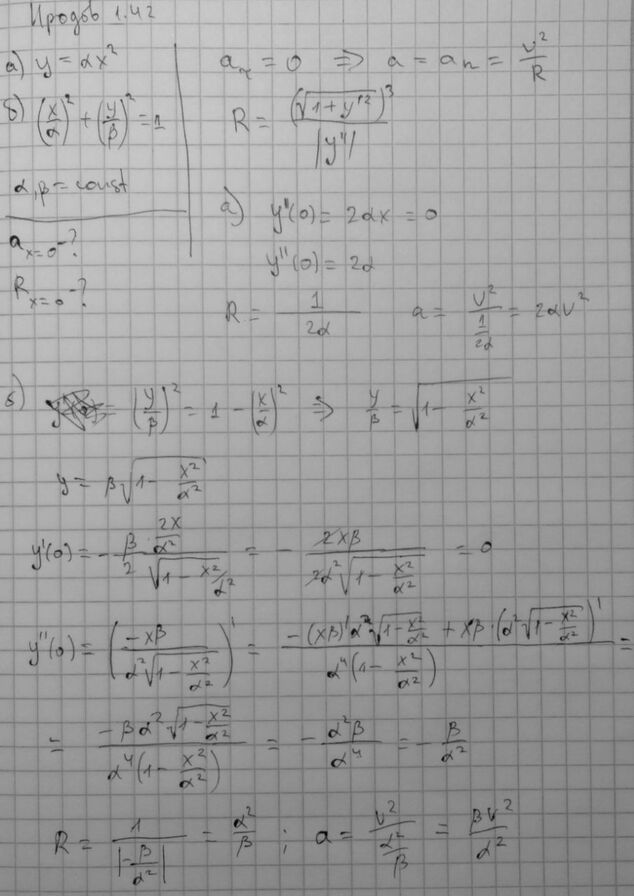 Иродов 1.42
а) y = αx²
б) (x/α)² + (y/β)² = 1
α, β = const
a_{x=0} - ?
R_{x=0} - ?
a_τ = 0 ⇒ a = a_n = v²/R
R = (√(1 + y'²))³ / |y''|
а) y'(0) = 2αx = 0
y''(0) = 2α
R = 1/(2α) a = v²/(1/(2α)) = 2αv²
б) = (y/β)² = 1 - (x/α)² ⇒ y/β = √(1 - x²/α²)
y = β√(1 - x²/α²)
y'(0) = - (β · 2x/α²)/(2√(1 - x²/α²)) = - 2xβ/(2α²√(1 - x²/α²)) = 0
y''(0) = (-xβ/(α²√(1 - x²/α²)))' = (-(xβ)'α²√(1 - x²/α²) + xβ · (α²√(1 - x²/α²))')/(α⁴(1 - x²/α²)) =
= (-βα²√(1 - x²/α²))/(α⁴(1 - x²/α²)) = - α²β/α⁴ = - β/α²
R = 1/|-β/α²| = α²/β ; a = v²/(α²/β) = βv²/α²